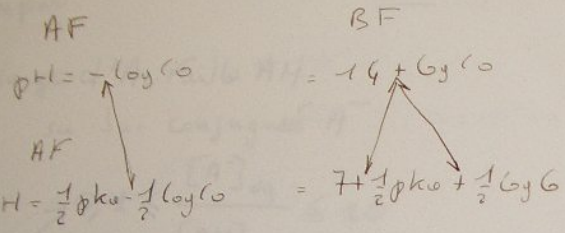 AF BF
pH = - log Co = 14 + log Co
AF
H = 1/2 pka - 1/2 log Co = 7 + 1/2 pka + 1/2 log Co